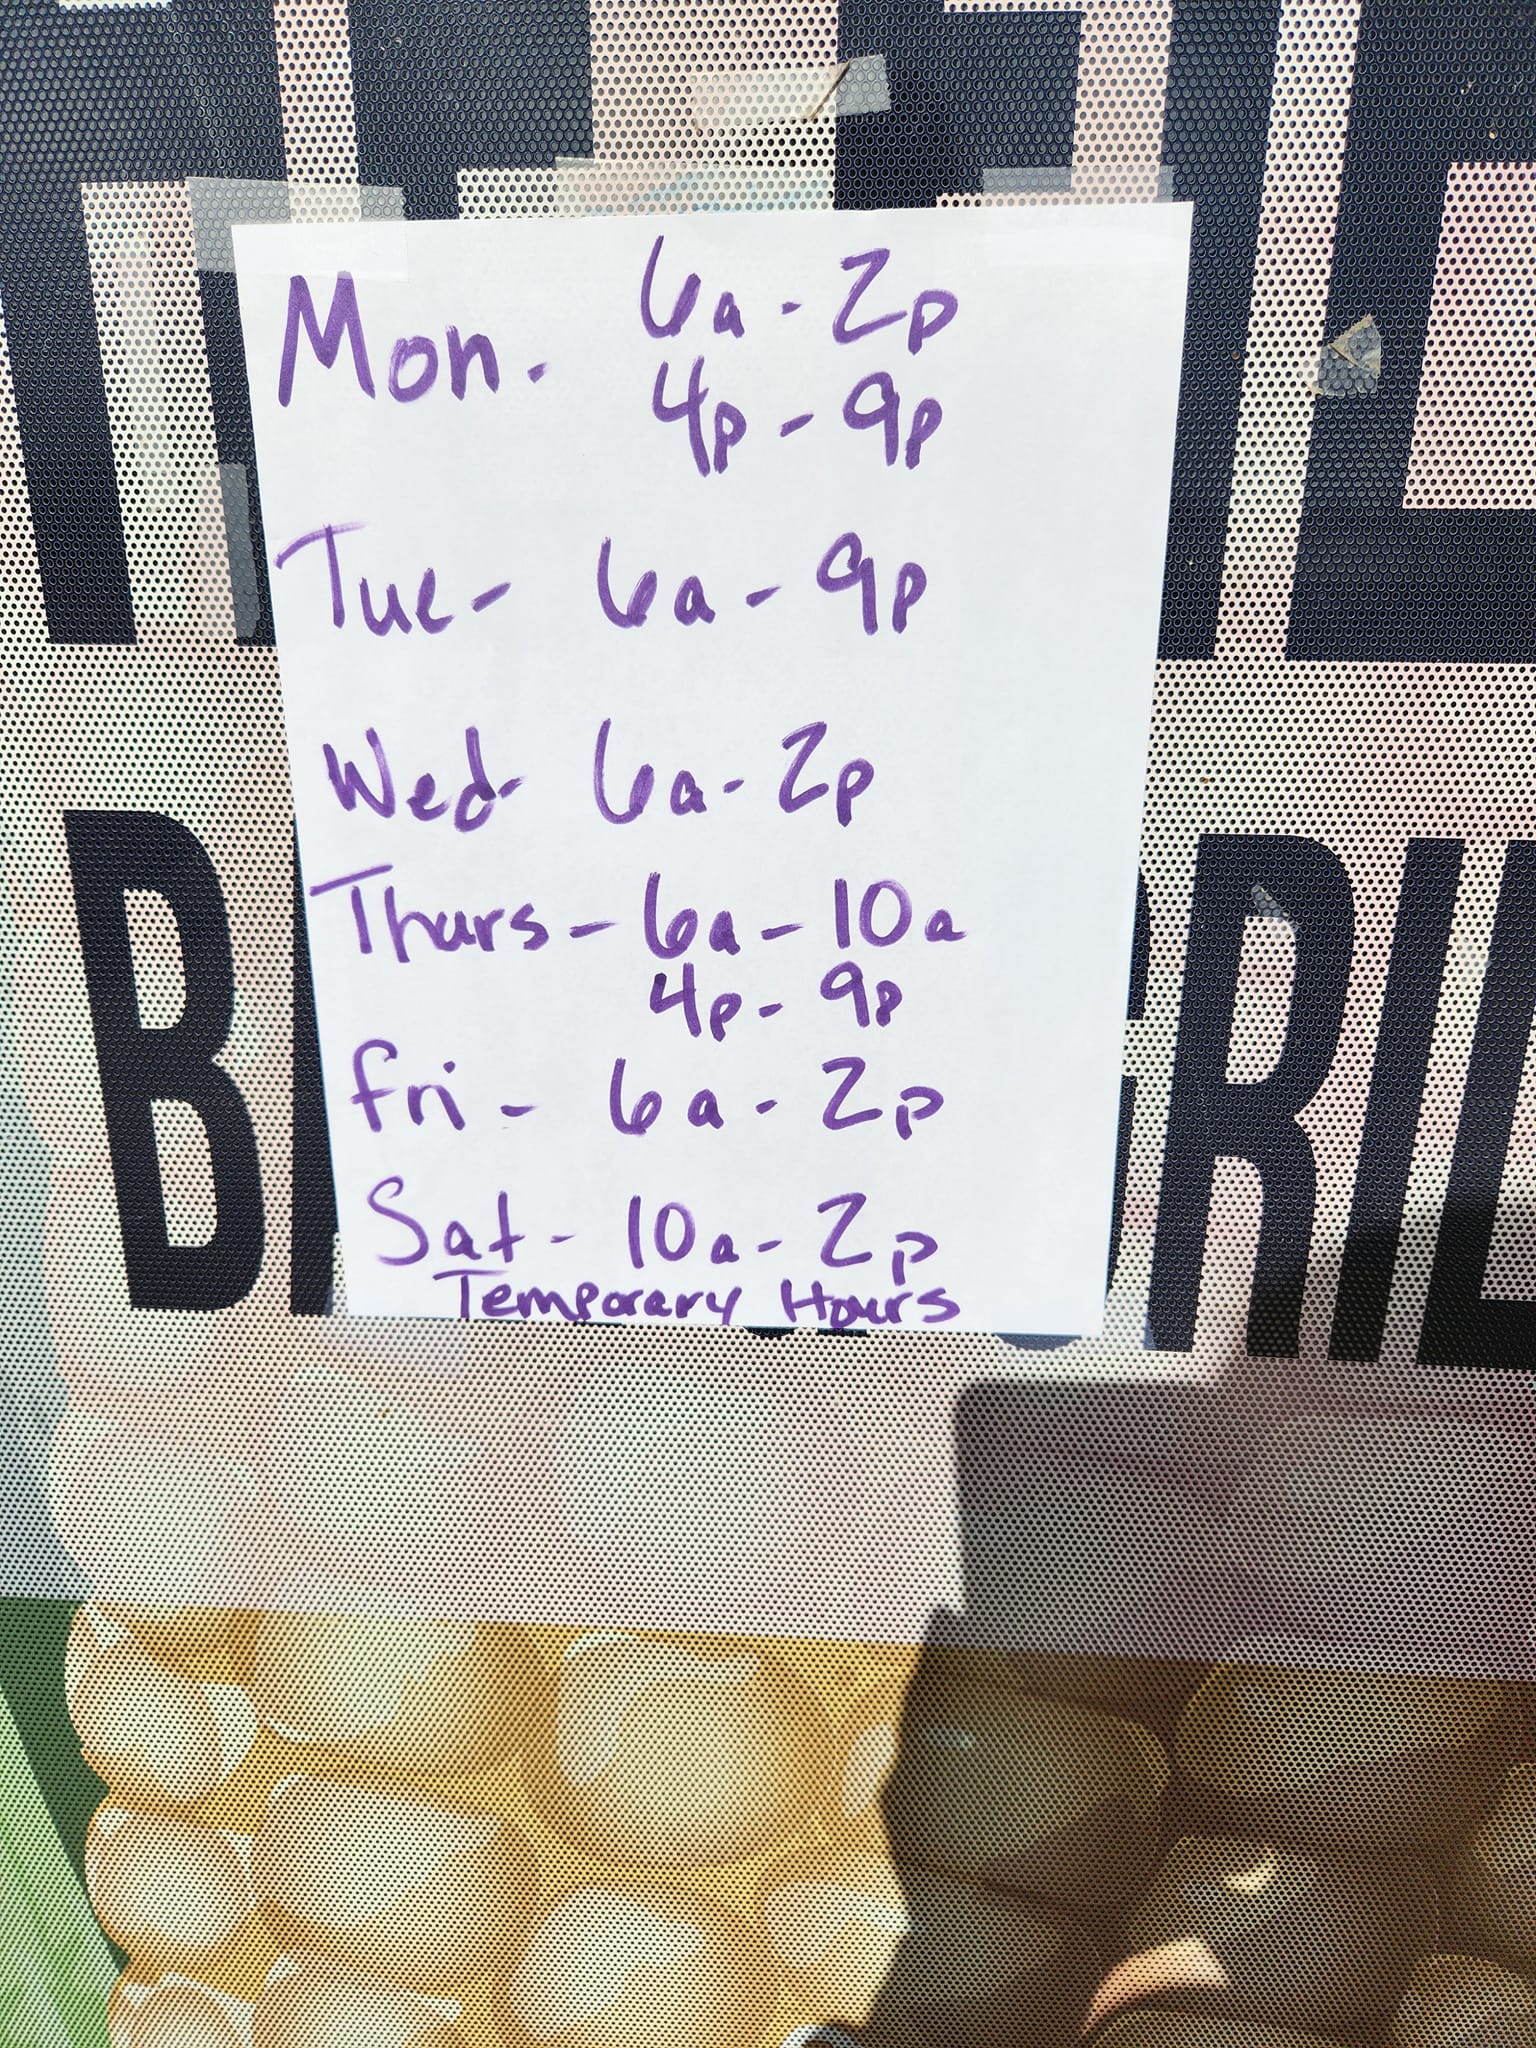 Mon. 6a - 2p
4p - 9p
Tue - 6a - 9p
Wed - 6a - 2p
Thurs - 6a - 10a
4p - 9p
Fri - 6a - 2p
Sat - 10a - 2p
Temporary Hours